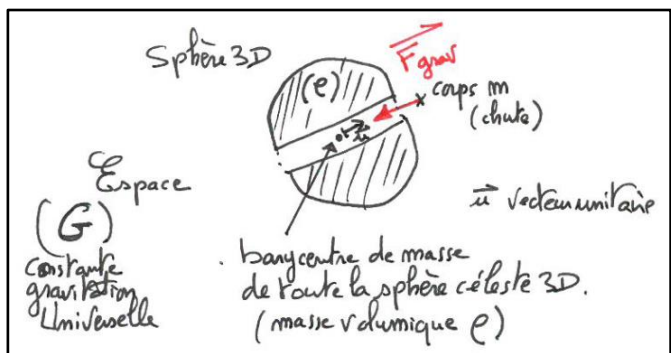 Sphère 3D
(ρ)
F grav
corps m
(chute)
u
Espace
(G)
constante
gravitation
Universelle
u vecteur unitaire
barycentre de masse
de toute la sphère céleste 3D.
(masse volumique ρ)